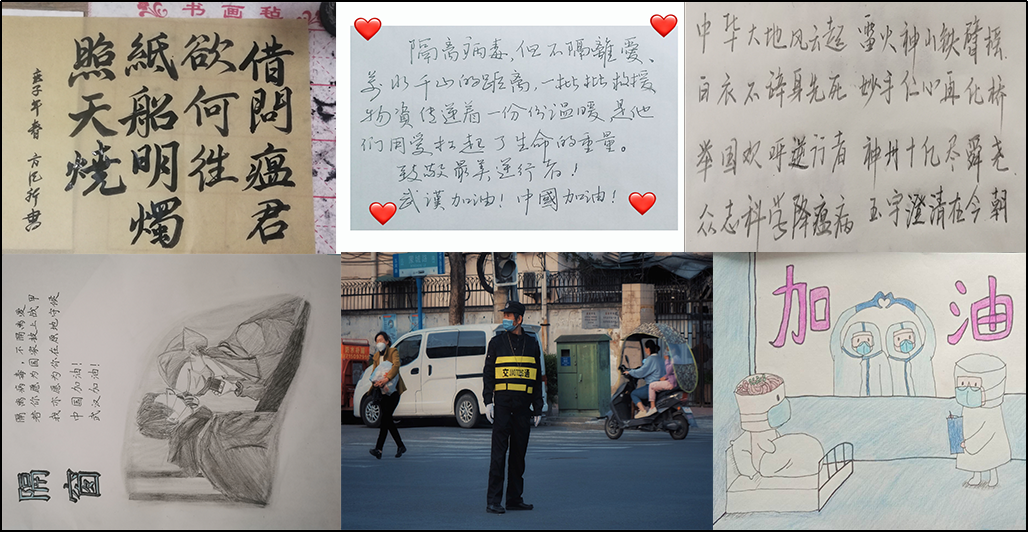 书画毡
借問瘟君
欲何往
紙船明燭
照天燒
庚子年春
隔离病毒,但不隔離爱、
萬水千山的距離,一批批救援
物資传递着一份份温暖,是他
们用爱扛起了生命的重量。
致敬最美逆行者!
武漢加油!中國加油!
中华大地风云起 雷火神山铁臂摇
白衣不辞身先死 妙手仁心再化桥
举国欢呼逆行者 神州十亿尽舜尧
众志科学降瘟病 玉宇澄清在今朝
隔离病毒,不隔离爱
若你愿为国家披上战甲
我亦愿为你在原地守候
中国加油!
武汉加油!
隔窗
交通
加油